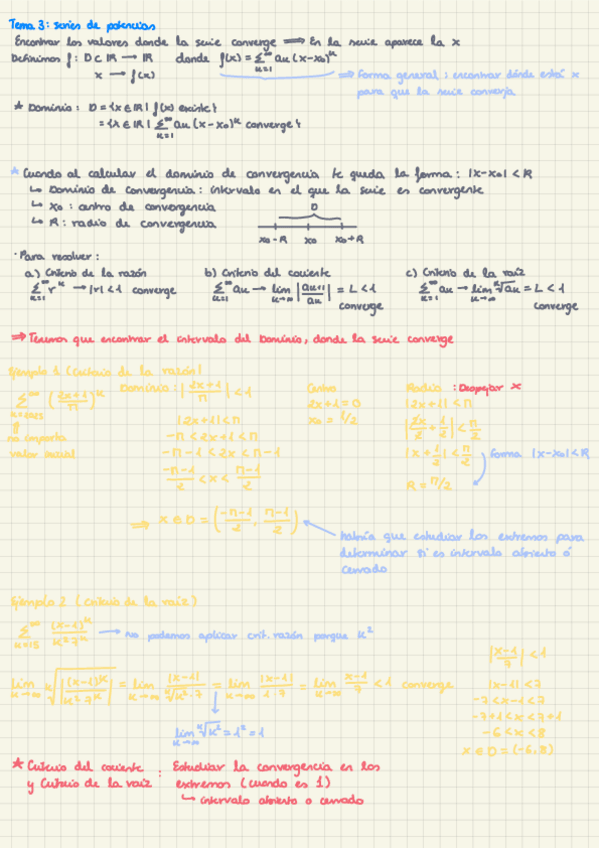 Tema 3: series de potencias
Encontrar los valores donde la serie converge ⟹ En la serie aparece la x
Definimos f: D⊂ℝ → ℝ donde f(x) = ∑_{k=1}^∞ a_k (x-x₀)^k
x → f(x)
⟹ Forma general: encontrar dónde está x
para que la serie converja
* Dominio: D = {x ∈ ℝ | f(x) existe}
= {x ∈ ℝ | ∑_{k=1}^∞ a_k (x-x₀)^k converge}
* Cuando al calcular el dominio de convergencia te queda la forma: |x-x₀| < R
↳ Dominio de convergencia: intervalo en el que la serie es convergente
↳ x₀: centro de convergencia
↳ R: radio de convergencia
D
x₀-R x₀ x₀+R
· Para resolver:
a) Criterio de la razón b) Criterio del cociente c) Criterio de la raíz
∑_{k=1}^∞ r^k → |r| < 1 converge
∑_{k=1}^∞ a_k → lím_{k→∞} |a_{k+1}/a_k| = L < 1
converge
∑_{k=1}^∞ a_k → lím_{k→∞} ᵏ√a_k = L < 1
converge
⟹ Tenemos que encontrar el intervalo del Dominio, donde la serie converge
Ejemplo 1 (Criterio de la razón)
∑_{k=2025}^∞ ((2x+1)/π)^k
no importa
valor inicial
Dominio: |(2x+1)/π| < 1
|2x+1| < π
-π < 2x+1 < π
-π-1 < 2x < π-1
(-π-1)/2 < x < (π-1)/2
Centro
2x+1=0
x₀ = 1/2
Radio : Despejar x
|2x+1| < π
|2x/2 + 1/2| < π/2
|x + 1/2| < π/2
forma |x-x₀| < R
R = π/2
⟹ x ∈ D = ((-π-1)/2, (π-1)/2)
habría que estudiar los extremos para
determinar si es intervalo abierto ó
cerrado
Ejemplo 2 (criterio de la raíz)
∑_{k=15}^∞ (x-1)^k/(k² 7^k) → No podemos aplicar crit. razón porque k²
lím_{k→∞} ᵏ√|(x-1)^k/(k² 7^k)| = lím_{k→∞} |x-1|/(ᵏ√k² · 7) = lím_{k→∞} |x-1|/(1·7) = lím_{k→∞} (x-1)/7 < 1 converge
lím_{k→∞} ᵏ√k² = 1² = 1
|(x-1)/7| < 1
|x-1| < 7
-7 < x-1 < 7
-7+1 < x < 7+1
-6 < x < 8
x ∈ D = (-6,8)
* Criterio del cociente : Estudiar la convergencia en los
y Criterio de la raíz extremos (cuando es 1)
↳ intervalo abierto o cerrado